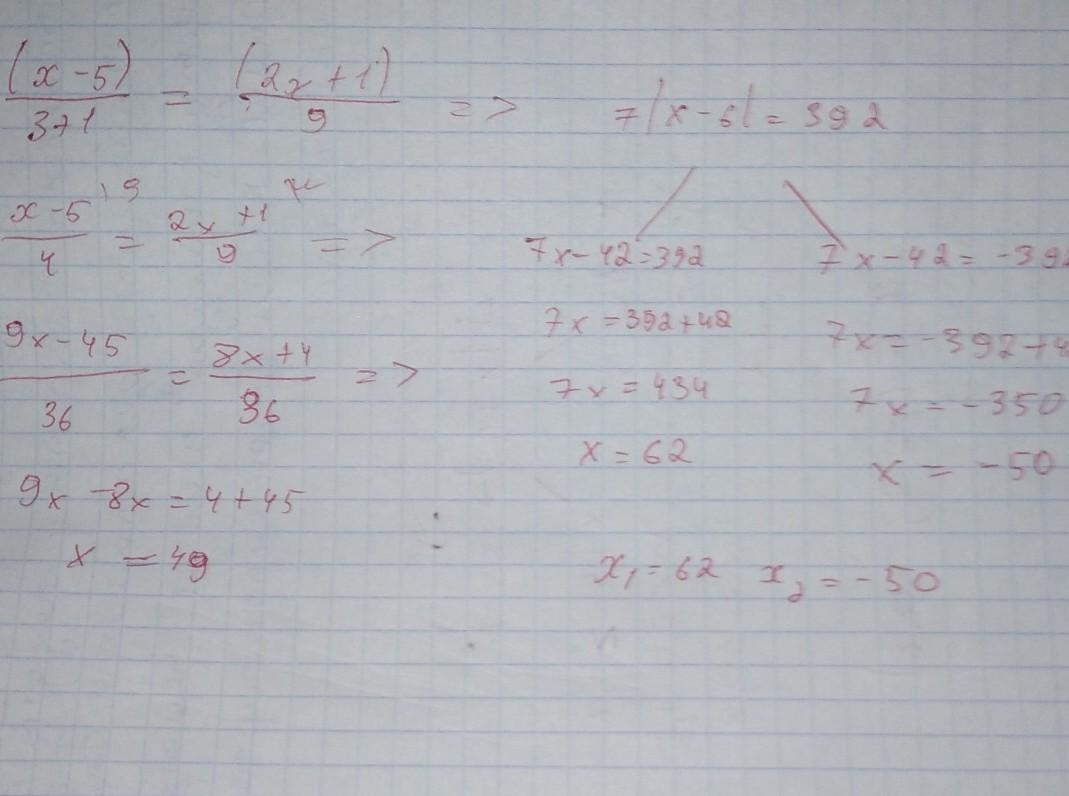 (x-5)/3+1 = (2x+1)/9 =>
x-5/4 \9 = 2x+1/9 =>
9x-45/36 = 8x+4/36 =>
9x-8x=4+45
x=49
7|x-6|=392
7x-42=392
7x=392+42
7x=434
x=62
7x-42=-392
7x=-392+4
7x=-350
x=-50
x₁=62 x₂=-50